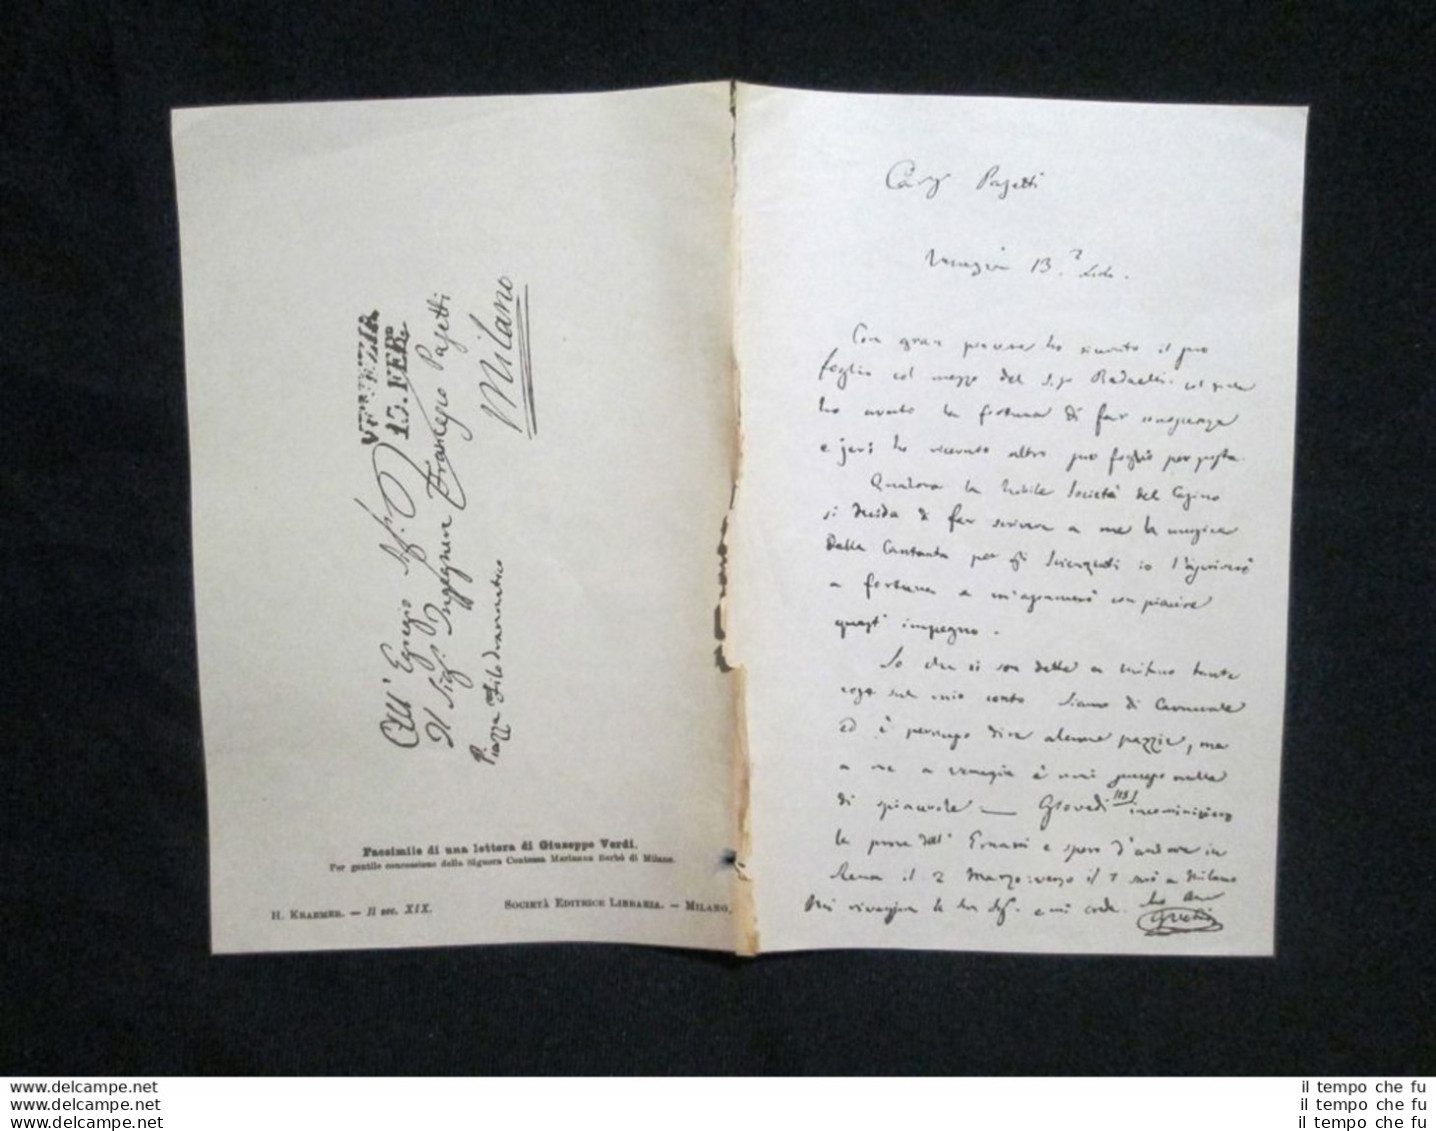 VENEZIA
13. FEB.
All' Egregio Sig.
Il Sig. Ingegnere Francesco Pasetti
Piazza Filodrammatico
Milano
Facsimile di una lettera di Giuseppe Verdi.
Per gentile concessione della Signora Contessa Marianna Serbò di Milano.
H. Kraemer. — Il sec. XIX.
Società Editrice Libraria. — Milano.
Caro Pasetti
Venezia 13.
Con gran piacere ho ricevuto il suo
foglio col mezzo del Sig.
ho avuto la fortuna di far conoscenza
e jeri ho ricevuto altro suo foglio per posta.
Qualora la Nobile Società del Casino
si decida di far scrivere a me la musica
Della Cantanta per gli Scienziati io l'ascriverò
a fortuna e m'assumerò con piacere
quest' impegno.
So che si son dette a Milano tante
cose sul mio conto Siamo di Carnevale
ed è permesso dire alcune pazzie, ma
a me a Venezia è
di spiacevole — Giovedì incominciano
le prove dell' Ernani e spero d'andare in
Scena il 2 Marzo: verso il 7 sarò a Milano
G Verdi
www.delcampe.net
www.delcampe.net
www.delcampe.net
il tempo che fu
il tempo che fu
il tempo che fu